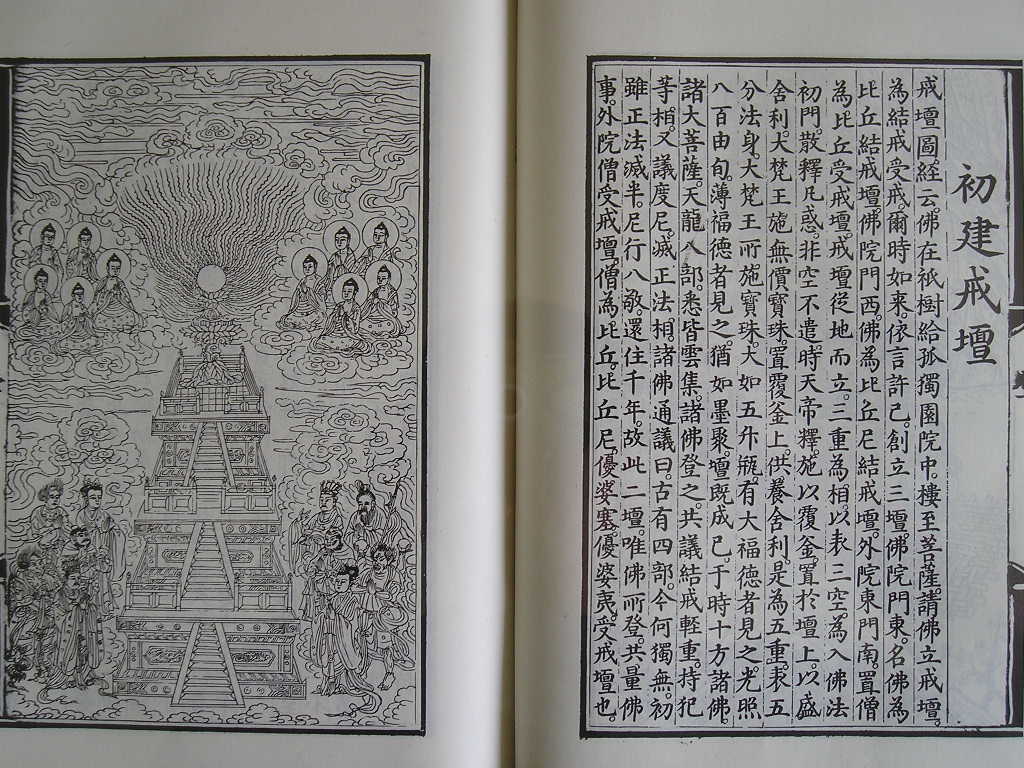 初建戒壇
戒壇圖經云。佛在祇樹給孤獨園院中。樓至菩薩。請佛立戒壇。
為結戒受戒。爾時如來。依言許已。創立三壇。佛院門東。名佛為
比丘結戒壇。佛院門西。佛為比丘尼結戒壇。外院東門南。置僧
為比丘受戒壇。戒壇從地而立。三重為相。以表三空。為入佛法
初門。散釋凡惑。非空不遣。時天帝釋。施以覆釜。置於壇上。以盛
舍利。大梵王施無價寶珠。置覆釜上。供養舍利。是為五重。表五
分法身。大梵王所施寶珠。大如五升瓶。有大福德者見之。光照
八百由旬。薄福德者見之。猶如墨聚。壇既成已。于時十方諸佛。
諸大菩薩。天龍八部。悉皆雲集。諸佛登之。共議結戒輕重。持犯
等相。又議度尼。滅正法相。諸佛通議曰。古有四部。今何獨無。初
雖正法滅半。尼行八敬。還住千年。故此二壇。唯佛所登。共量佛
事。外院僧受戒壇。僧為比丘。比丘尼。優婆塞。優婆夷。受戒壇也。